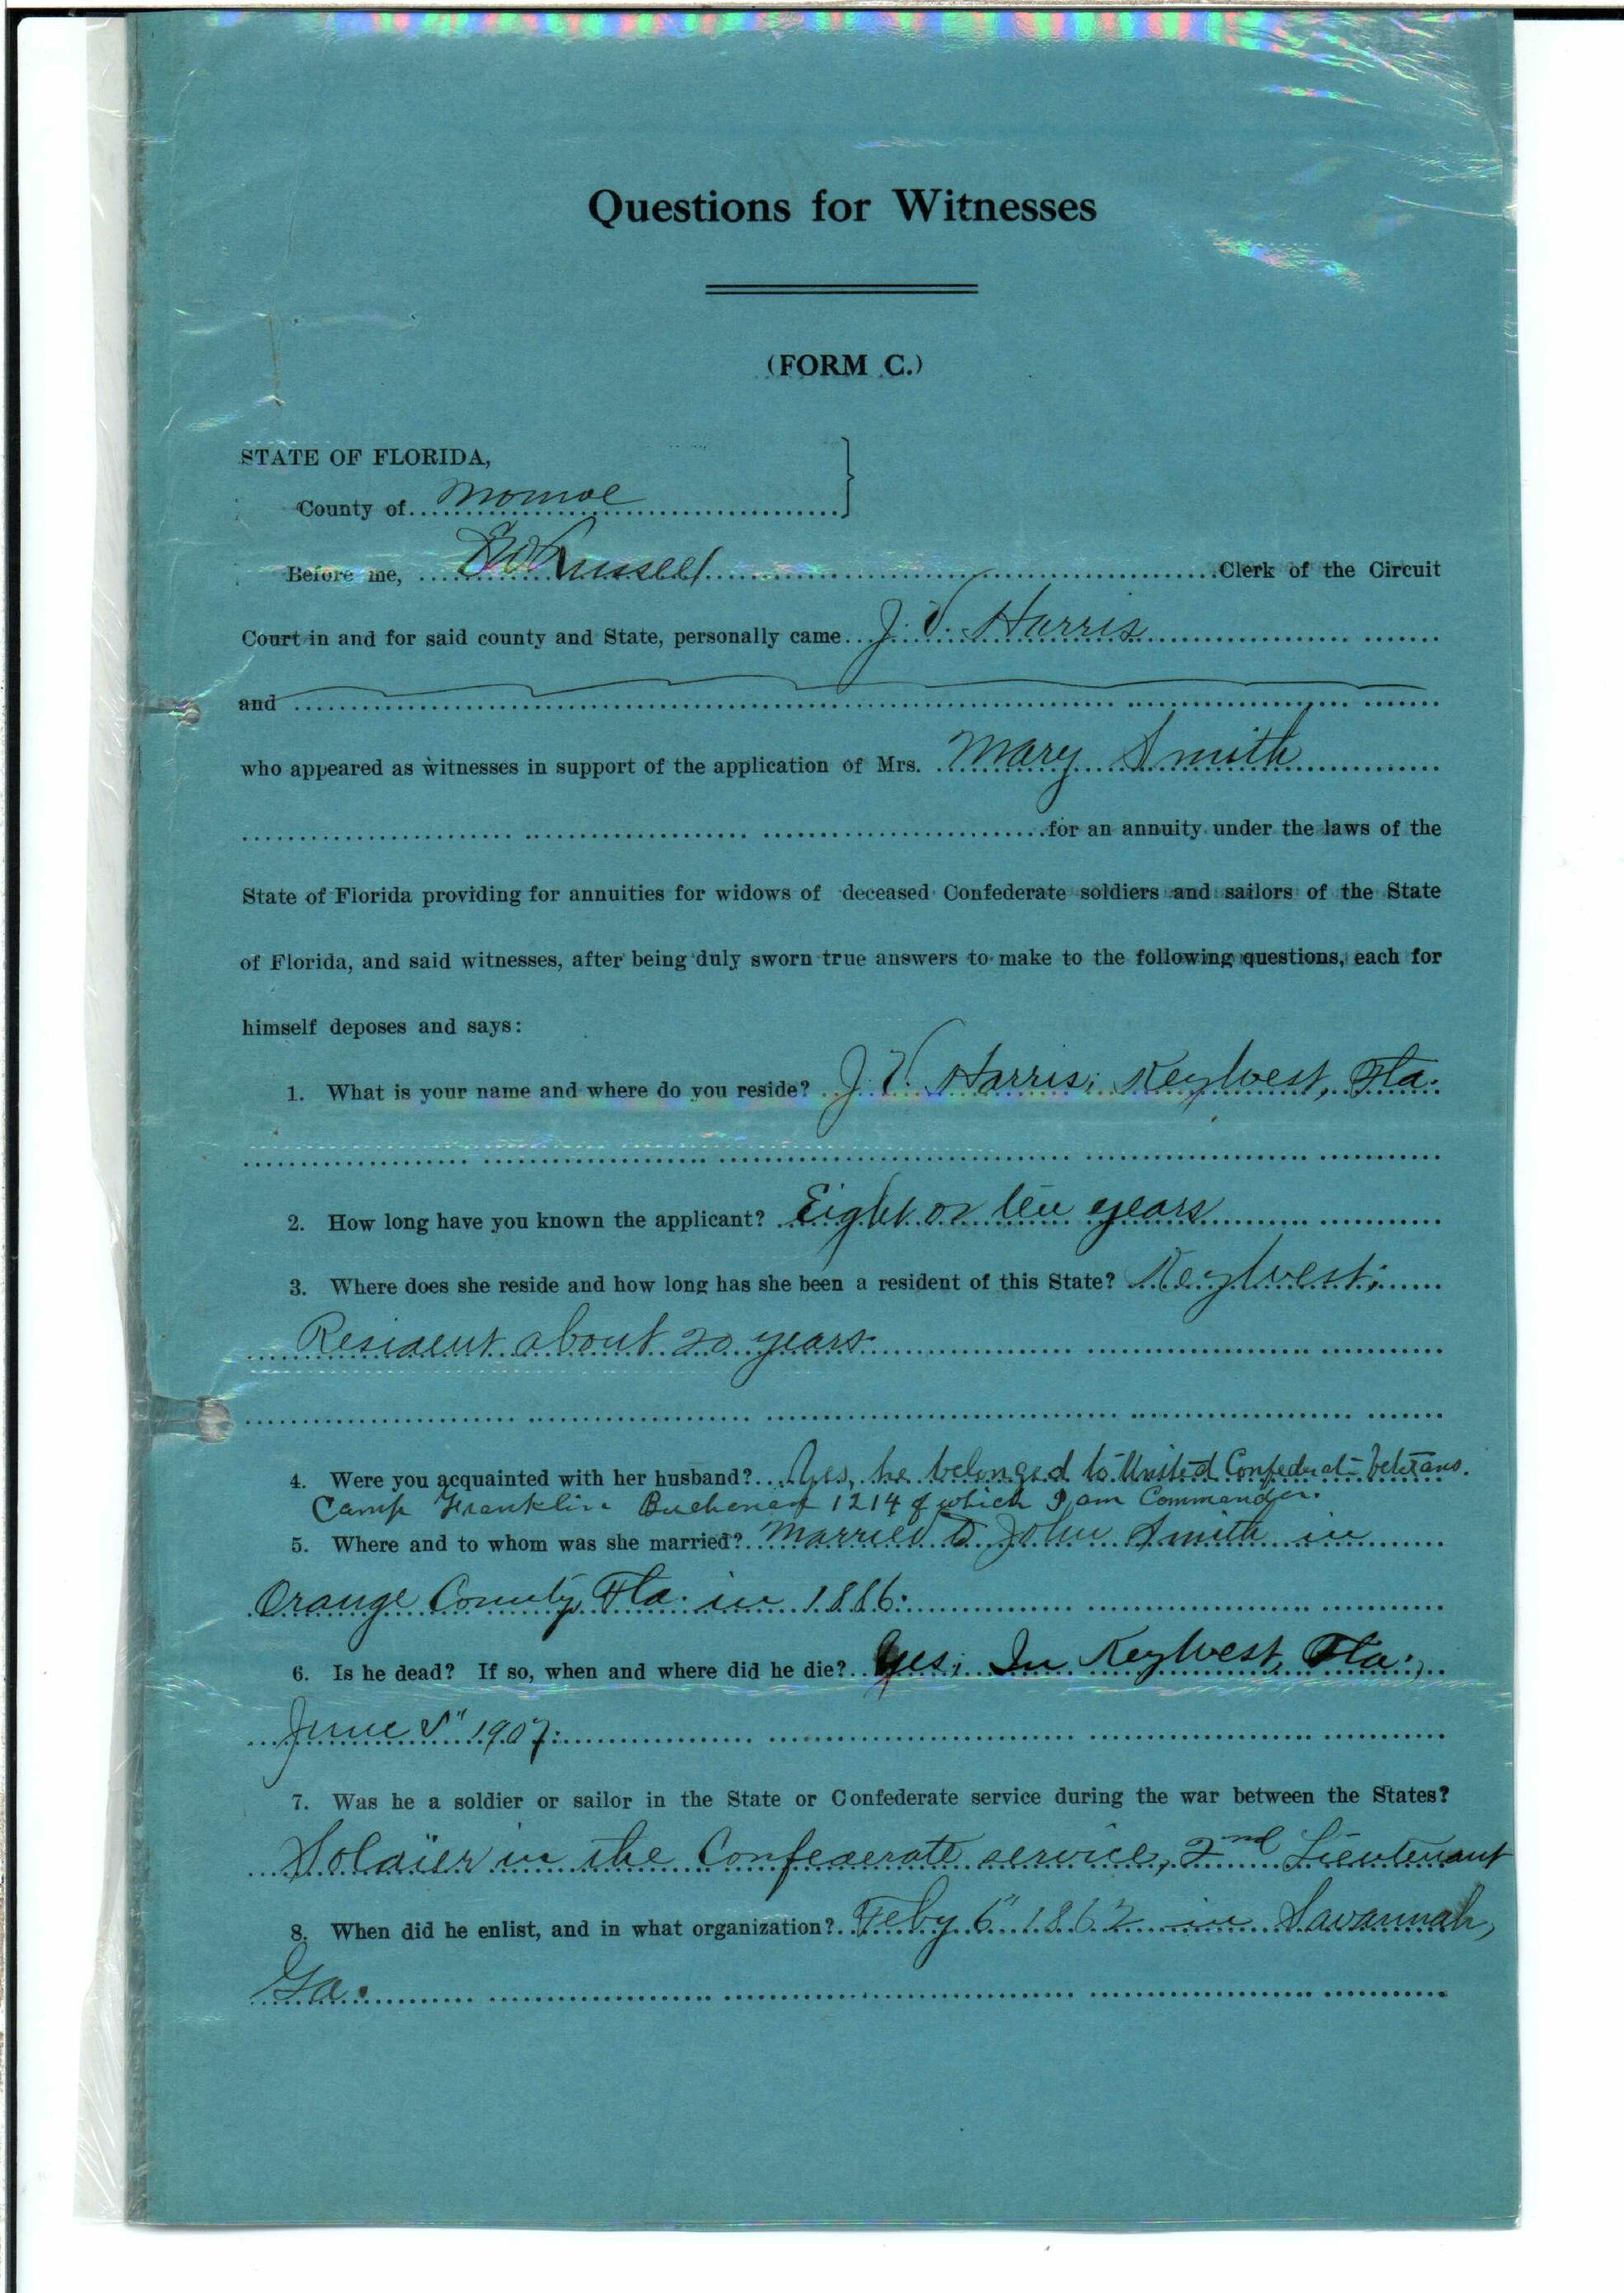 Questions for Witnesses
(FORM C.)
STATE OF FLORIDA,
County of Monroe
Before me, Russell Clerk of the Circuit
Court in and for said county and State, personally came J. V. Harris
and
who appeared as witnesses in support of the application of Mrs. Mary Smith
for an annuity under the laws of the
State of Florida providing for annuities for widows of deceased Confederate soldiers and sailors of the State
of Florida, and said witnesses, after being duly sworn true answers to make to the following questions, each for
himself deposes and says:
1. What is your name and where do you reside? J. V. Harris; Key West, Fla.
2. How long have you known the applicant? Eight or ten years
3. Where does she reside and how long has she been a resident of this State? Key West;
Resident about 20 years
4. Were you acquainted with her husband? Yes, he belonged to United Confederate Veterans.
Camp Franklin Buchanan 1214 of which I am Commander.
5. Where and to whom was she married? Married to John Smith in
Orange County, Fla. in 1886.
6. Is he dead? If so, when and where did he die? Yes; In Key West, Fla.,
June 1907.
7. Was he a soldier or sailor in the State or Confederate service during the war between the States?
Soldier in the Confederate service, 2nd Lieutenant
8. When did he enlist, and in what organization? Feby 6" 1862 in Savannah,
Ga.